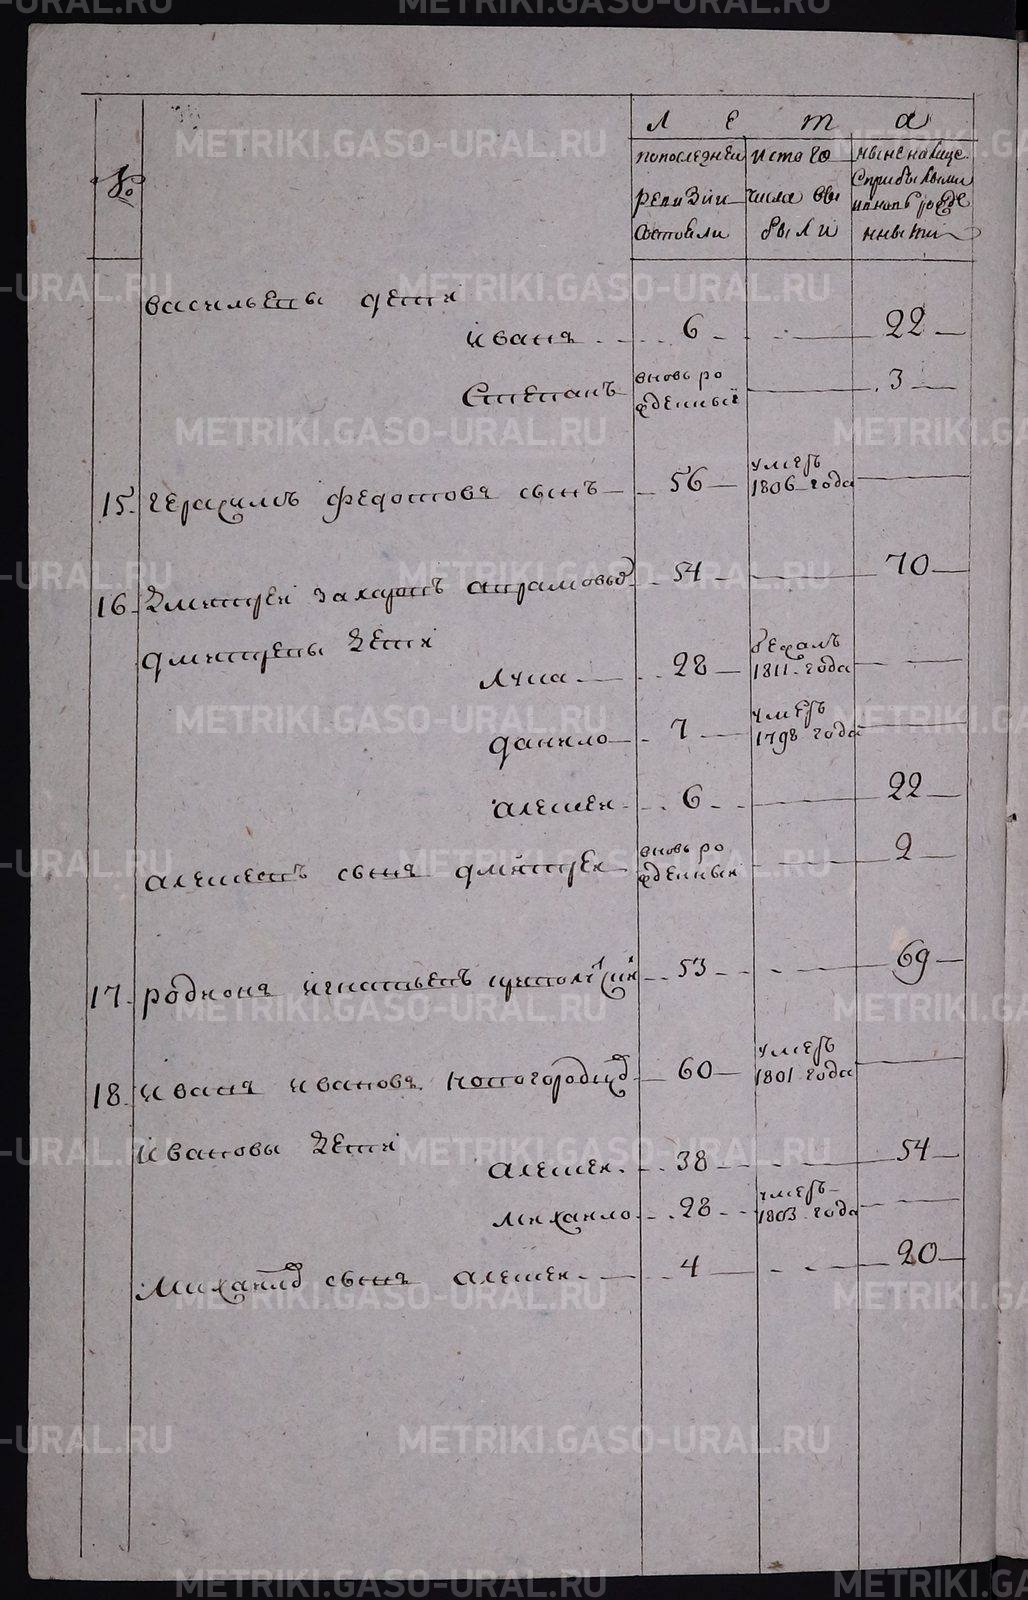 №
Лета
попоследней ревизии состояли
истого числа выбыли
ныне налице сприбылыми и вновь рожденными
васильевы дети
иванъ 6 22
Степанъ вновь рожденный 3
15. герасимъ федотовъ сынъ 56 умеръ 1806 года
16. Дмитрей захаровъ 54 70
дмитревы дети
лука 28 бежалъ 1811 года
данило 7 умеръ 1798 года
алексей 6 22
алексеевъ сынъ дмитрей вновь рожденный 2
17. родионъ игнатьевъ 53 69
18. иванъ ивановъ новогородцов 60 умеръ 1801 года
ивановы дети
алексей 38 54
михайло 28 умеръ 1803 года
михайлов сынъ алексей 4 20
METRIKI.GASO-URAL.RU